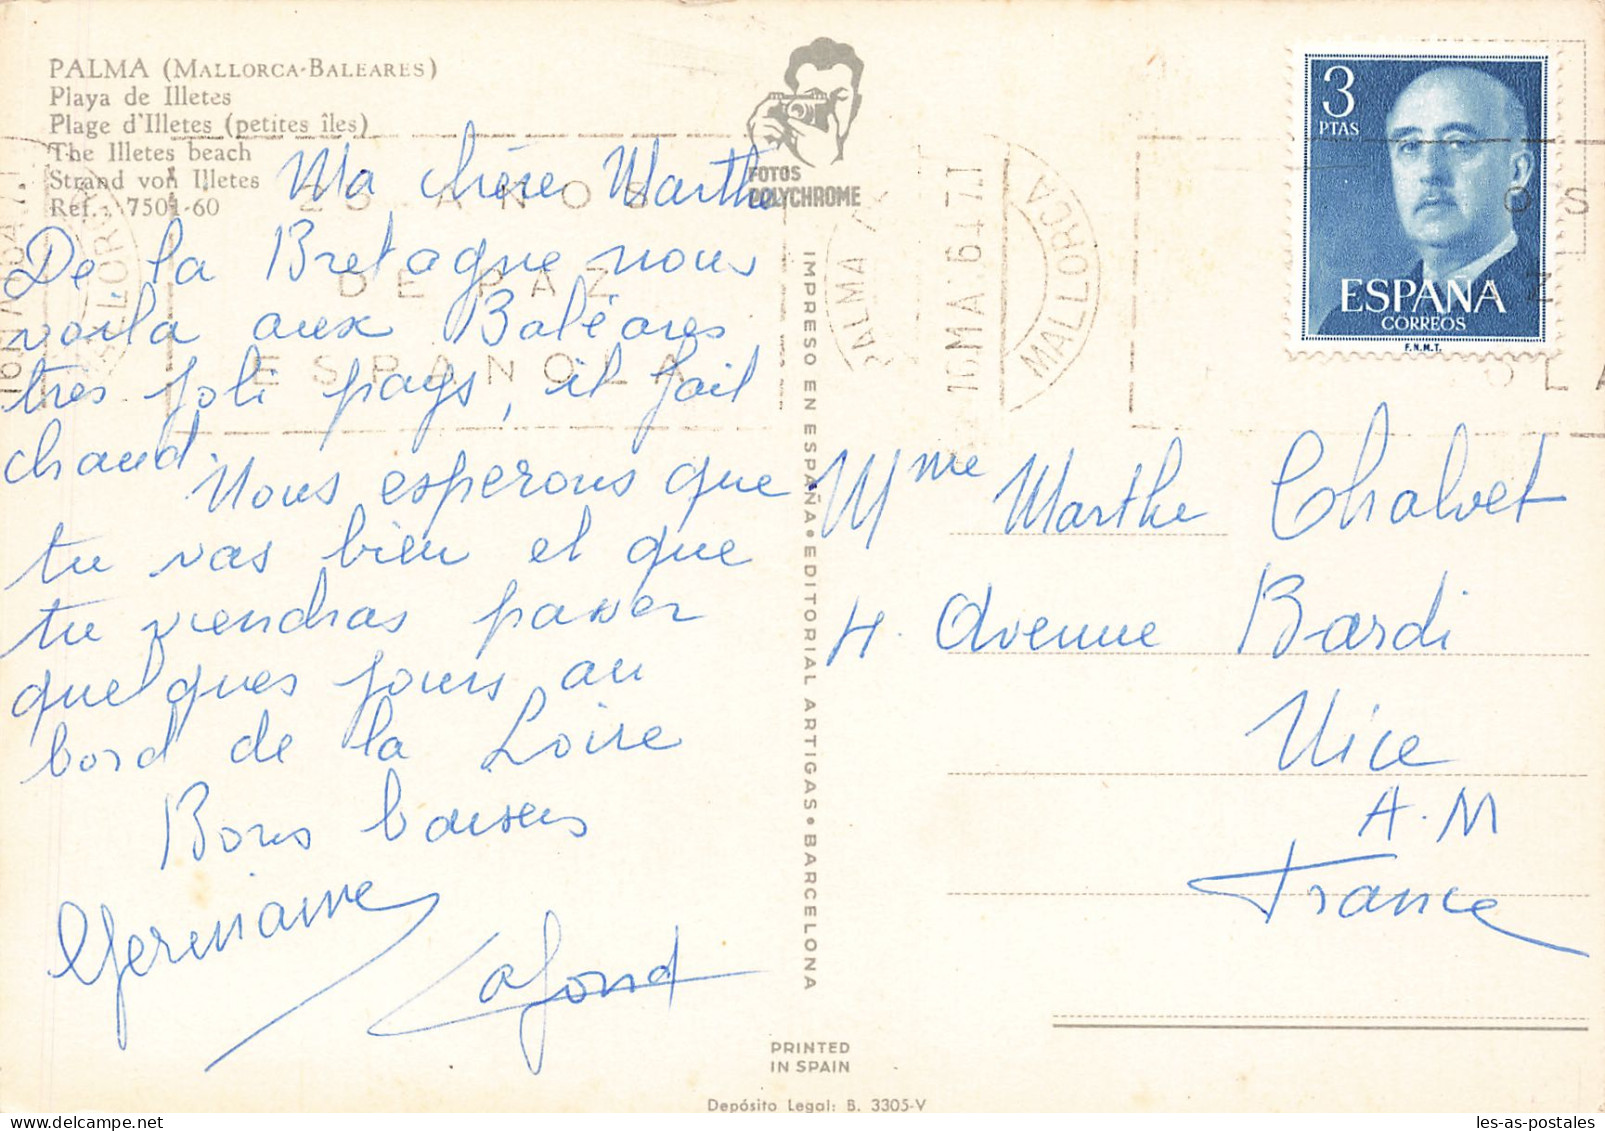 PALMA (MALLORCA-BALEARES)
Playa de Illetes
Plage d'Illetes (petites îles)
The Illetes beach
Strand von Illetes
Ref.: 7501-60
Ma chère Marthe
De la Bretagne nous
voila aux Baléares
très joli pays, il fait
chaud.
Nous esperons que
tu vas bien et que
tu viendras passer
quelques jours au
bord de la Loire
Bons baisers
Germaine
Lafond
25 AÑOS
DE PAZ
ESPAÑOLA
FOTOS
POLYCHROME
IMPRESO EN ESPAÑA • EDITORIAL ARTIGAS • BARCELONA
PALMA
10MA 64 7.T
MALLORCA
3
PTAS
ESPAÑA
CORREOS
F.N.M.T.
OS
Z
OLA
Mme Marthe Chalvet
4. Avenue Bardi
Nice
A.M
France
PRINTED
IN SPAIN
Depósito Legal: B. 3305-V
les-as-postales